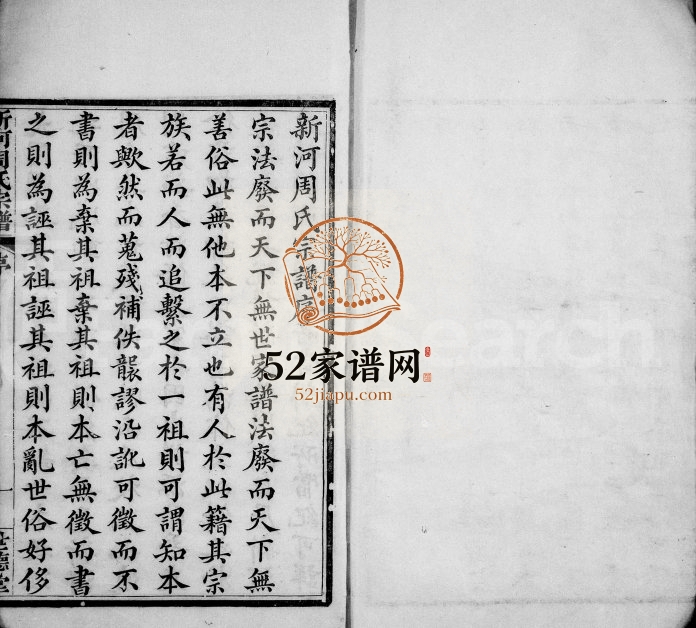 新河周氏宗譜序
宗法廢而天下無世家譜法廢而天下無
善俗此無他本不立也有人於此籍其宗
族若而人而追繫之於一祖則可謂知本
者歟然而蒐殘補佚襲謬沿訛可徵而不
書則為棄其祖棄其祖則本亡無徵而書
之則為誣其祖誣其祖則本亂世俗好侈
新河周氏宗譜
序
一
世德堂
52家谱网
52jiapu.com